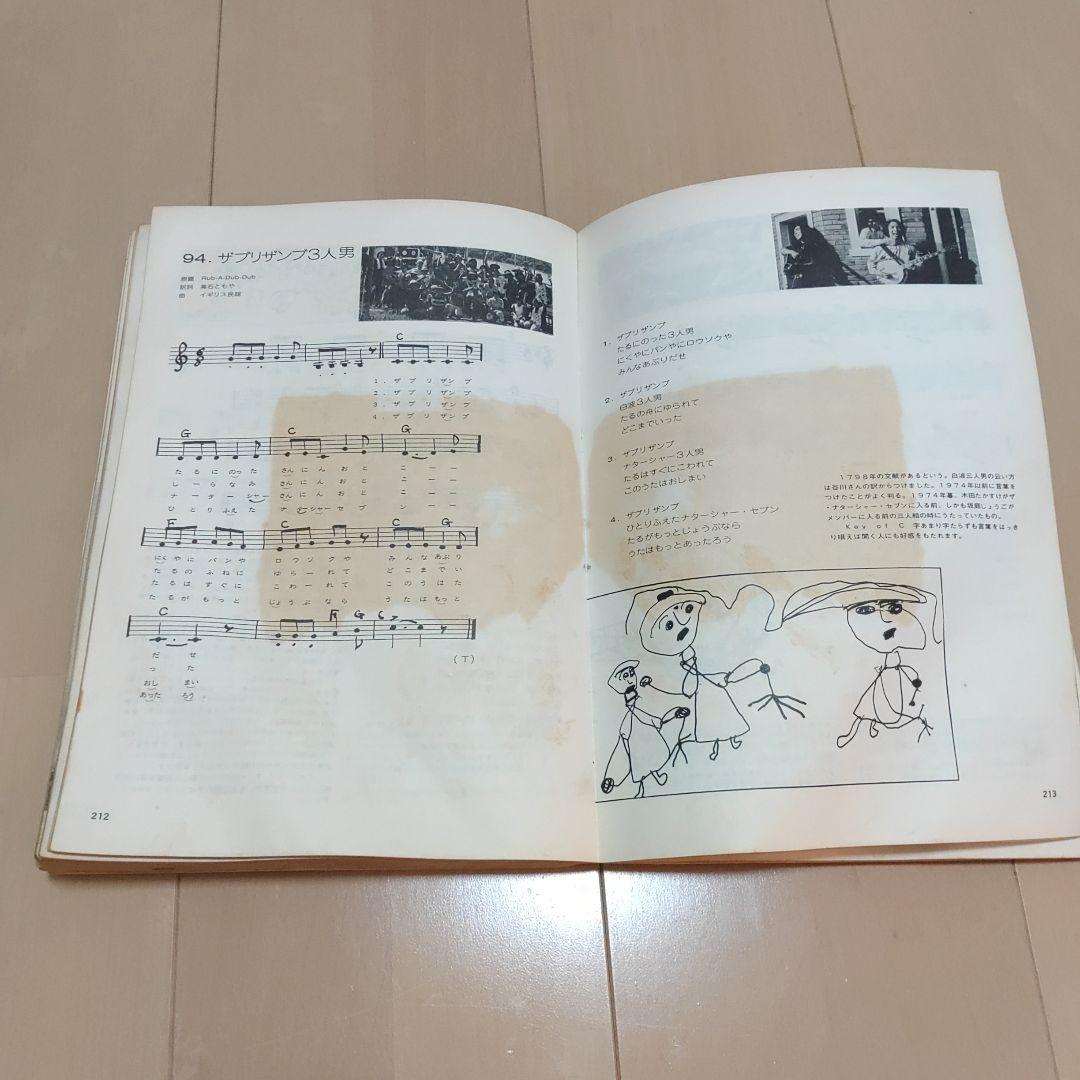 94. ザブリザンブ3人男
原題 Rub-A-Dub-Dub
訳詞 高石ともや
曲 イギリス民謡
C
1. ザ ブ リ ザン ブ
2. ザ ブ リ ザン ブ
3. ザ ブ リ ザン ブ
4. ザ ブ リ ザン ブ
G C G
た る に のっ た さん に ん お と こ ー ー
し ー ら な み さん に ん お と こ ー ー
ナ ー ター シャ ー さん に ん お と こ ー ー
ひ と り ふえ た ナ ターシャー セ ブ ン ー ー
F C C G
にく や に パ ン や ロ ウ ソ ク や み ん な あぶ り
た る の ふ ね に ゆ ら ー れ て ど こ ま で い
た る は す ぐ に こ わ ー れ て こ の う は た
た る が も っ と じょ う ぶ な ら う た は もっ と
C F G C
だ せ
っ た
おし まい
あった ろう 。
(T)
212
1. ザブリザンブ
たるにのった3人男
にくやにパンやにロウソクや
みんなあぶりだせ
2. ザブリザンブ
白波3人男
たるの舟にゆられて
どこまでいった
3. ザブリザンブ
ナターシャー3人男
たるはすぐにこわれて
このうたはおしまい
4. ザブリザンブ
ひとりふえたナターシャー・セブン
たるがもっとじょうぶなら
うたはもっとあったろう
1798年の文献があるという。白波三人男の云い方
は谷川さんの訳からつけました。1974年以前に言葉を
つけたことがよく判る。1974年暮、木田たかすけがザ
・ナターシャー・セブンに入る前、しかも坂庭しょうごが
メンバーに入る前の三人組の時にうたっていたもの。
Key of C 字あまり字たらずも言葉をはっき
り唄えば聞く人にも好感をもたれます。
213